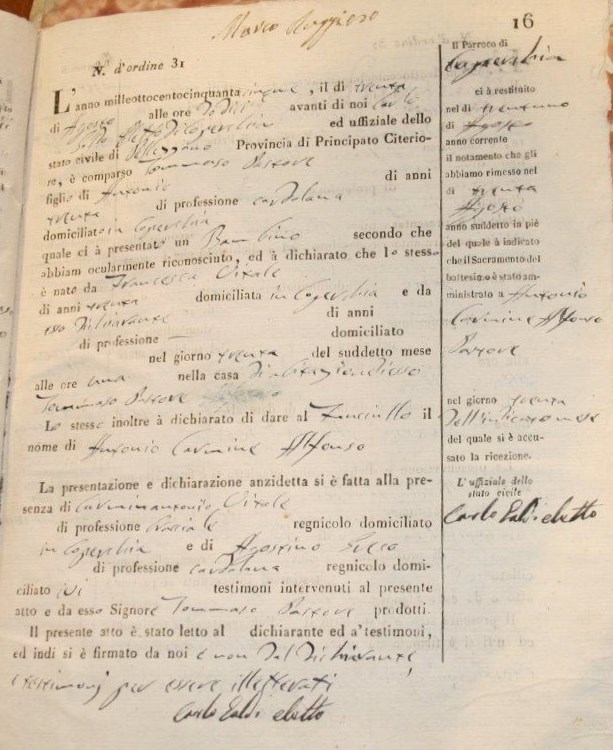 Marco Ruggiero
16
N. d'ordine 31
L'anno milleottocentocinquantacinque, il dì trenta
di Agosto alle ore dodici avanti di noi Carlo
Baldi Eletto di Capezzano ed uffiziale dello
stato civile di Pellezzano Provincia di Principato Citerio-
re, è comparso Tommaso Pastore
figlio di Antonio di anni
trenta di professione
domiciliato in secondo che
quale ci à presentato un Bambino
abbiam ocularmente riconosciuto, ed à dichiarato che lo stesso
è nato da Francesca Vitale
di anni trenta domiciliata in e da
esso Dichiarante di anni
di professione — domiciliato
nel giorno trenta del suddetto mese
alle ore una nella casa di abitazione di esso
Tommaso Pastore
Lo stesso inoltre à dichiarato di dare al Fanciullo il
nome di Antonio Carmine Alfonso
La presentazione e dichiarazione anzidetta si è fatta alla pre-
senza di Carminantonio Vitale
di professione regnicolo domiciliato
in e di Agostino
di professione regnicolo domi-
ciliato ivi testimoni intervenuti al presente
atto e da esso Signore Tommaso Pastore prodotti.
Il presente atto è stato letto al dichiarante ed a' testimoni,
ed indi si è firmato da noi e non dal Dichiarante,
e testimonj per essere illetterati
Carlo Baldi eletto
Il Parroco di
ci à restituito
nel dì trentuno
di Agosto
anno corrente
il notamento che gli
abbiamo rimesso nel
dì trenta
Agosto
anno suddetto in piè
del quale à indicato
che il Sacramento del
battesimo è stato am-
ministrato a Antonio
Carmine Alfonso
Pastore
nel giorno trenta
dell'indicato mese
del quale si è accu-
sato la ricezione.
L' uffiziale dello
stato civile
Carlo Baldi eletto